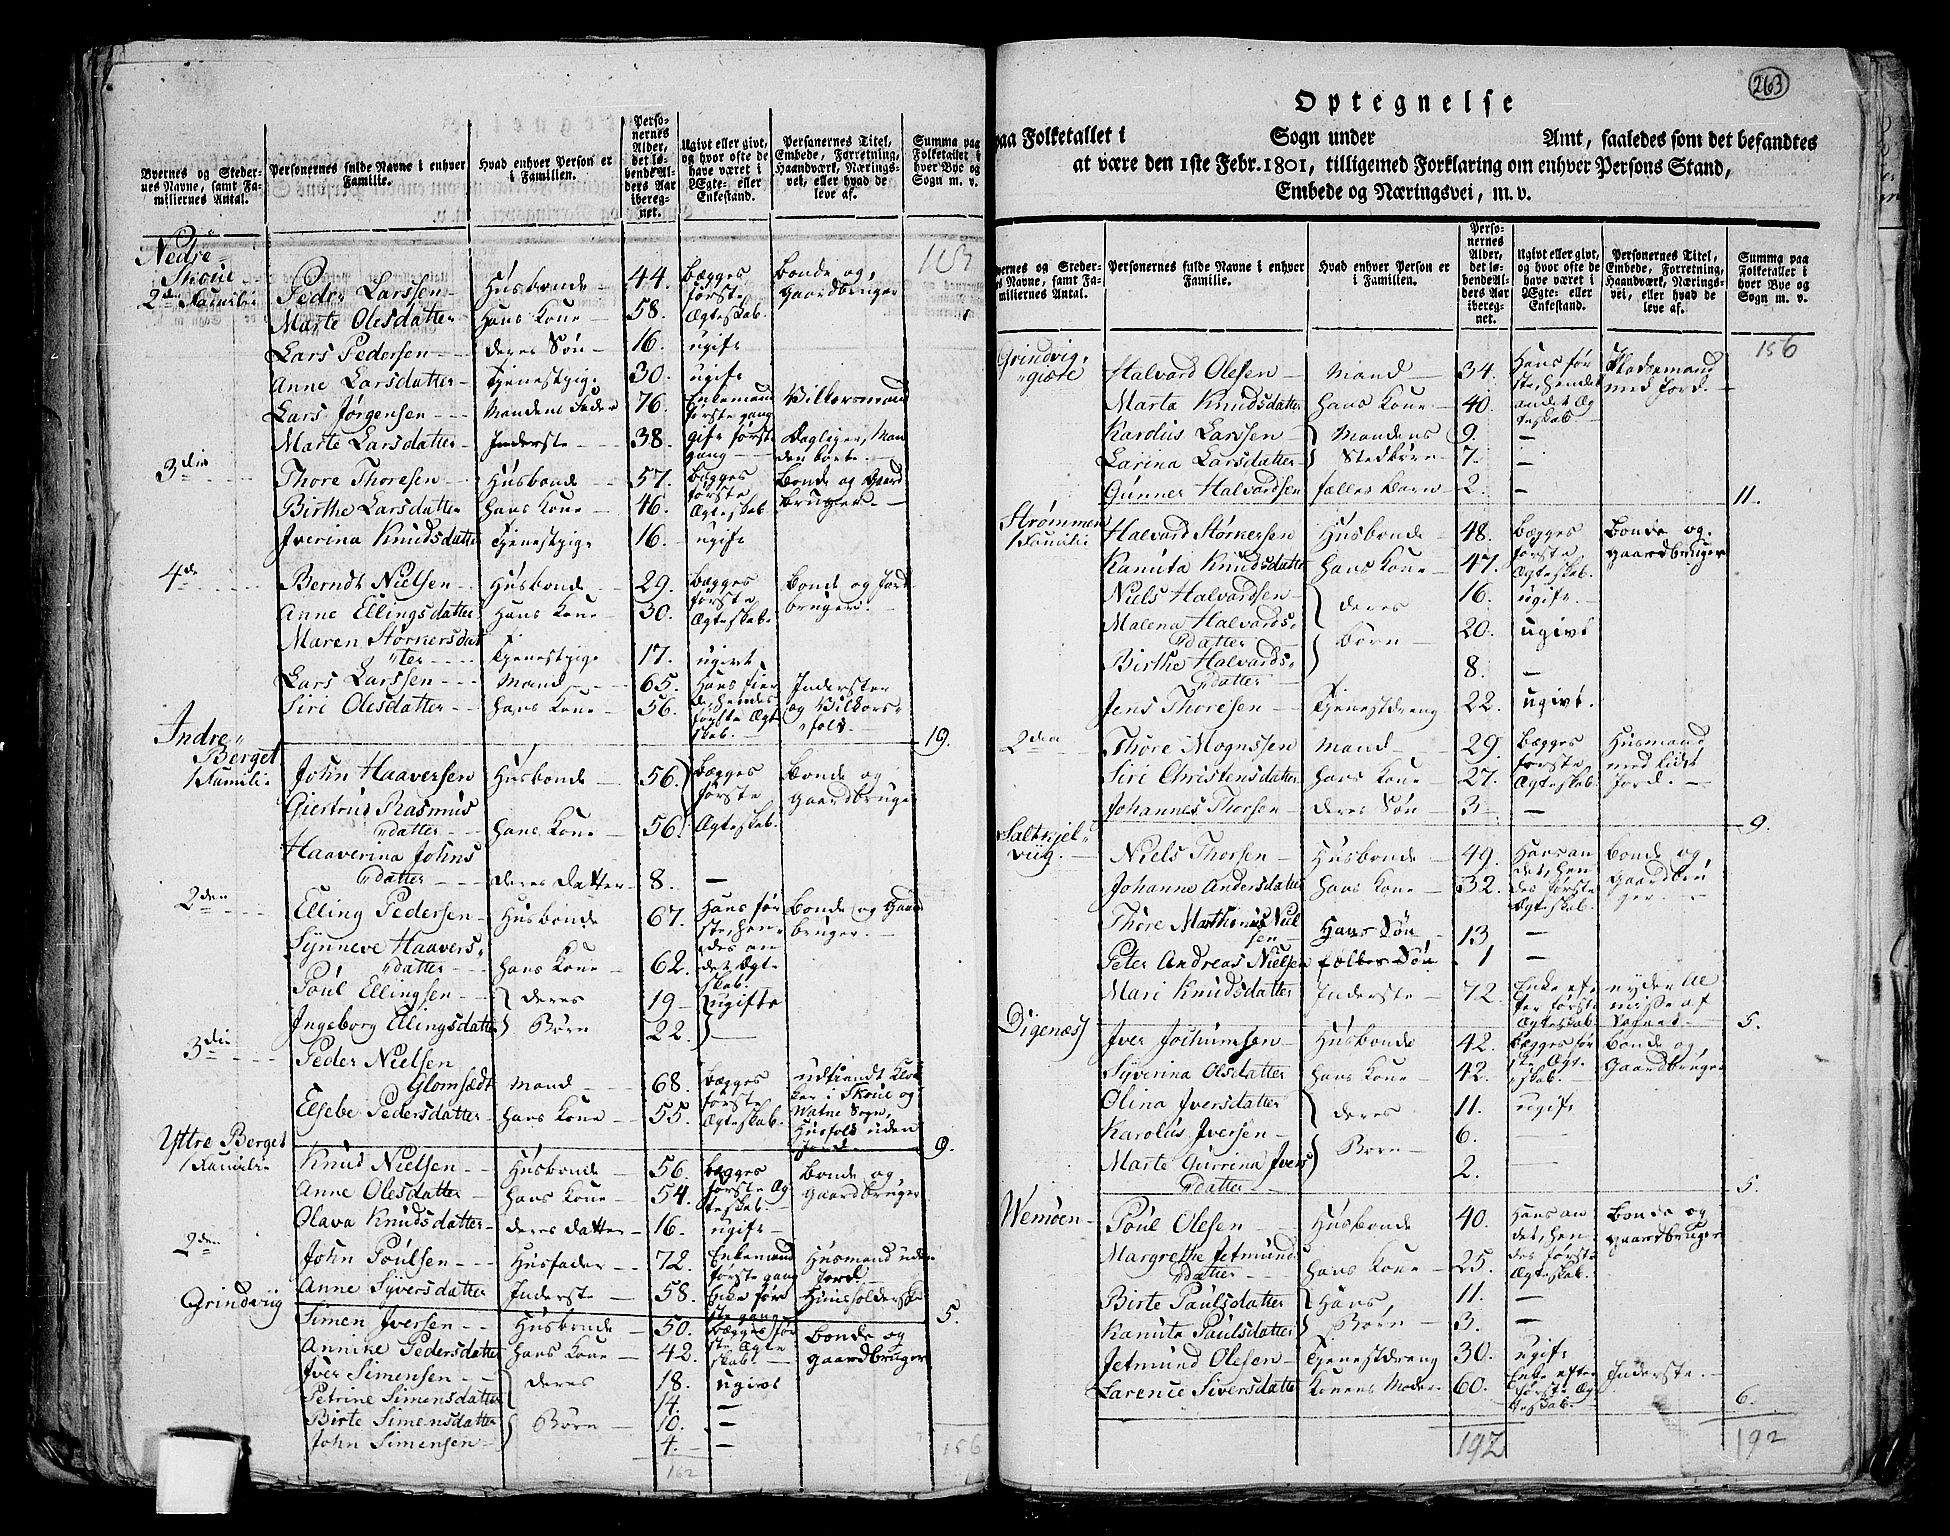 Byernes og Steder-
nes Navne, samt Fa-
miliernes Antal.
Personernes fulde Navne i enhver
Familie.
Hvad enhver Person er
i Familien.
Perso-
nernes
Alder,
det lø-
bende Al-
ders Aar
iberegg-
net.
Ugivt eller givt,
og hvor ofte de
have været i
Ægte- eller
Enkestand.
Personernes Titel,
Embede, Forretning,
Haandværk, Nærings-
vei, eller hvad de
leve af.
Summa paa
Folketallet i
hver Bye og
Sogn m. v.
Nedre
Skoue
2den Familie
Peder Larssen Husbonde 44. bægges første Ægteskab. bonde og gaardbruger
Marte Olesdatter hans Kone 58.
Lars Pedersen deres Søn 16. ugift
Anne Larsdatter Tjenestpige 30. ugift
Lars Jørgensen Mandens Fader 76. Enkemand første gang Vilkorsmand
Marte Larsdatter Inderste 38. gift først gang
3die Thore Thoresen Husbonde 57. bægges første Ægteskab bonde og gaard bruger
Birthe Larsdatter hans Kone 46.
Iverina Knudsdatter Tjenestpige 16. ugift
4de Berndt Nielsen Husbonde 29. bægges første Ægteskab. bonde og Jord bruger.
Anne Ellingsdatter hans Kone 30.
Maren Størkersdat
ter Tjenestpige 17. ugivt
Lars Larssen Mand 65. Inderster og Vilkors folk
Siri Olesdatter hans Kone 56.
19.
Indre
Berget
1 Familie
John Haaversen Husbonde 56. bægges første Ægteskab. bonde og gaardbruger
Giertrud Rasmus
datter hans Kone 56.
Haaverina Johns
datter deres datter 8. —
2den Elling Pedersen Husbonde 67. hans første, hendes andet Ægteskab. bonde og gaard bruger.
Synneve Haavers
datter hans Kone 62.
Poul Ellingsen deres 19 ugifte
Ingeborg Ellingsdatter Børn 22.
3die Peder Nielsen
Glomsædt Mand 68. bægges første Ægteskab. udtiendt Klokker i Skoue og Watne Sogn, Husfolk uden Jord.
Elsebe Pedersdatter hans Kone 55.
9.
Yttre Berget
1 Familie
Knud Nielsen Husbonde 56. bægges første Ægteskab. bonde og gaardbruger
Anne Olesdatter hans Kone 54.
Olava Knudsdatter deres datter 16. ugift
2den John Poulsen Husfader 72. Enkemand første gang Husmand uden Jord.
Anne Syversdatter Inderste 58. Enke første gang
5.
Grindviig
Simen Iversen Husbonde 50. bægges første Ægteskab. bonde og gaardbruger
Annike Pedersdatter hans Kone 42.
Iver Simensen deres 18. ugivt
Petrine Simensdatter 14. —
Birte Simensdatter Børn 10. —
John Simensen 4. —
162
156
263
Optegnelse
paa Folketallet i Sogn under Amt, saaledes som det befandtes
at være den 1ste Febr. 1801, tilligemed Forklaring om enhver Persons Stand,
Embede og Næringsvei, m. v.
ernes og Steder-
s Navne, samt Fa-
miliernes Antal.
Personernes fulde Navne i enhver
Familie.
Hvad enhver Person er
i Familien.
Perso-
nernes
Alder,
det lø-
bende Al-
ders Aar
iberegg-
net.
Ugivt eller givt,
og hvor ofte de
have været i
Ægte- eller
Enkestand.
Personernes Titel,
Embede, Forretning,
Haandværk, Nærings-
vei, eller hvad de
leve af.
Summa paa
Folketallet i
hver Bye og
Sogn m. v.
156
Grindvig
giære
Halvard Olesen Mand 34. hans første, hendes andet Ægteskab Pladsemand med Jord.
Marta Knudsdatter hans Kone 40.
Kardus Larssen Mandens 9. —
Larina Larsdatter Stedbørn 7. —
Gunner Halvardsen fælles barn 2. —
11.
Strømmen
1 Familie
Halvard Størkersen Husbonde 48. bægges første Ægteskab. bonde og gaardbruger
Kanuta Knudsdatter hans Kone 47.
Niels Halvardsen deres 16. ugift.
Malena Halvards
datter Børn 20. ugivt
Birthe Halvards
datter 8. —
Jens Thoresen Tjenestdreng 22. ugivt.
2den Thore Mognssen Mand 29. bægges første Ægteskab Husmand med lidt Jord.
Siri Christensdatter hans Kone 27.
Johannes Thorsen deres Søn 3 —
9.
Saltkjel
viig.
Niels Thorsen Husbonde 49. hans andet, hendes første Ægteskab. bonde og gaardbruger.
Johanne Andersdatter hans Kone 32.
Thore Marthinus Niel
sen Hans Søn 13 —
Peter Andreas Nielsen fælles Søn 1 —
Mari Knudsdatter Inderste 72. Enke efter første Ægteskab
5.
Digenæs
Iver Jochumsen Husbonde 42. bægges første Ægteskab. bonde og gaardbruger
Syverina Olsdatter hans Kone 42.
Olina Iversdatter deres 11. ugift
Karolus Iversen 6. —
Marte Gurrina Ivers Børn
datter 2. —
5.
Wemøen
Poul Olesen Husbonde 40. hans andet, hendes første Ægteskab. bonde og gaardbruger
Margrethe Jetmunds
datter hans Kone 25.
Birte Paulsdatter Hans 11. —
Kanuta Paulsdatter Børn 3. —
Jetmund Olesen Tjenestdreng 30. ugift
Larence Siversdatter Konens Moder 60. Enke efter første Ægteskab. Inderste.
6.
192 192